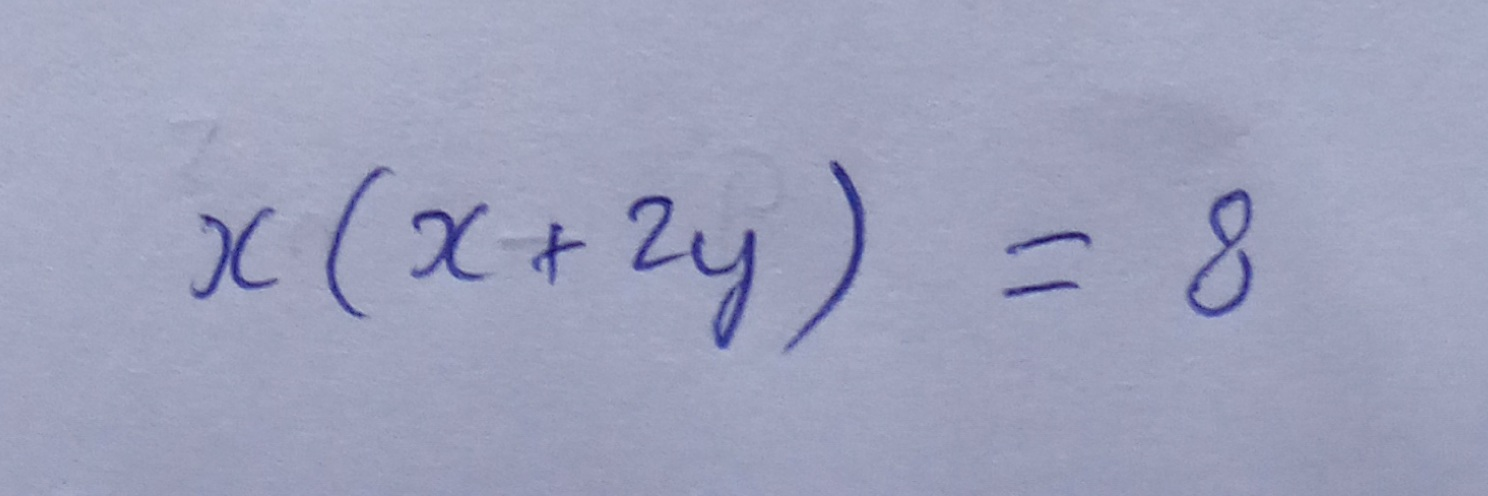 x(x+2y) = 8